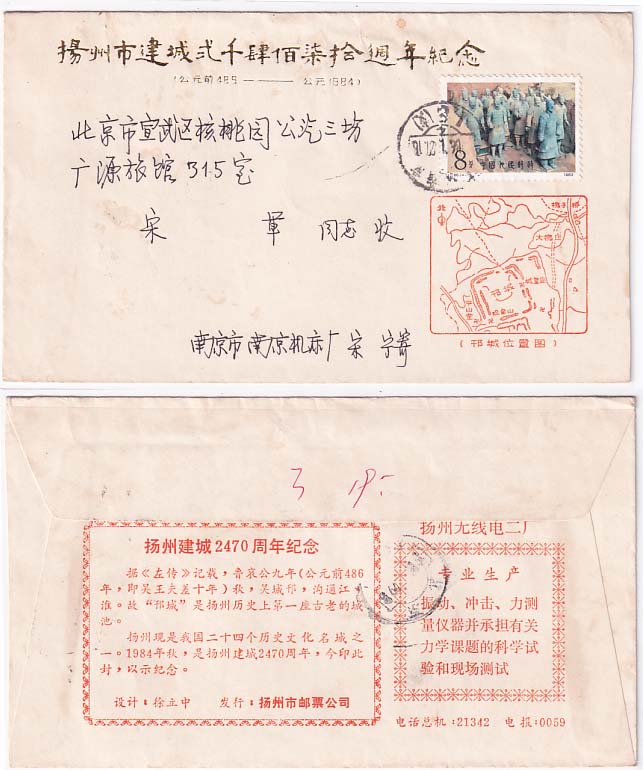 揚州市建城弍千肆佰柒拾週年紀念
(公元前486———公元1984)
北京市宣武区核桃园公汽三场
广源旅馆315室
宋 军 同志 收
8分 中国人民邮政
1983
北
大桥庄
邗城
(邗城位置图)
南京市南京机床厂宋宁寄
扬州建城2470周年纪念
据《左传》记载,鲁哀公九年(公元前486
年,即吴王夫差十年)秋,吴城邗,沟通江
淮。故“邗城”是扬州历史上第一座古老的城
池。
扬州现是我国二十四个历史文化名城之
一。1984年秋,是扬州建城2470周年,今印此
封,以示纪念。
设计:徐立中 发行:扬州市邮票公司
扬州无线电二厂
专业生产
振动、冲击、力测
量仪器并承担有关
力学课题的科学试
验和现场测试
电话总机:21342 电报:0059